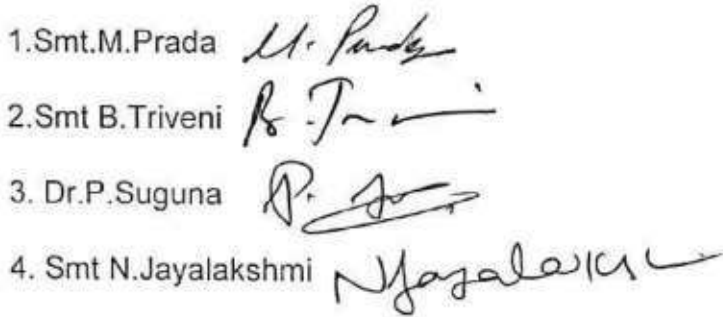 1.Smt.M.Prada M. Prada
2.Smt B.Triveni B. Tri
3. Dr.P.Suguna P. Su
4. Smt N.Jayalakshmi NJayalaksh